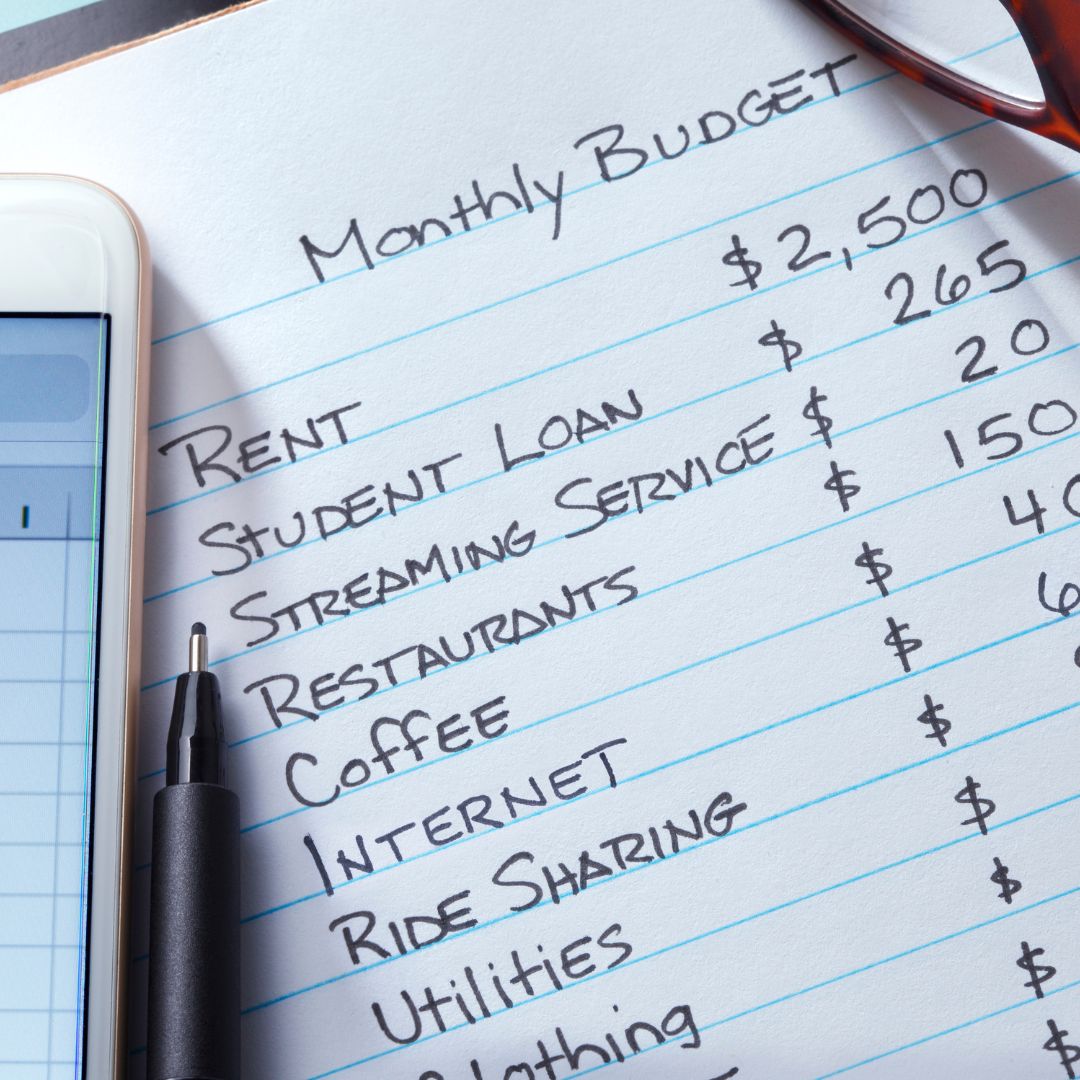 Monthly Budget
Rent $ 2,500
Student Loan $ 265
Streaming Service $ 20
Restaurants $ 150
Coffee $
Internet $
Ride Sharing $
Utilities $
Clothing $
$
$